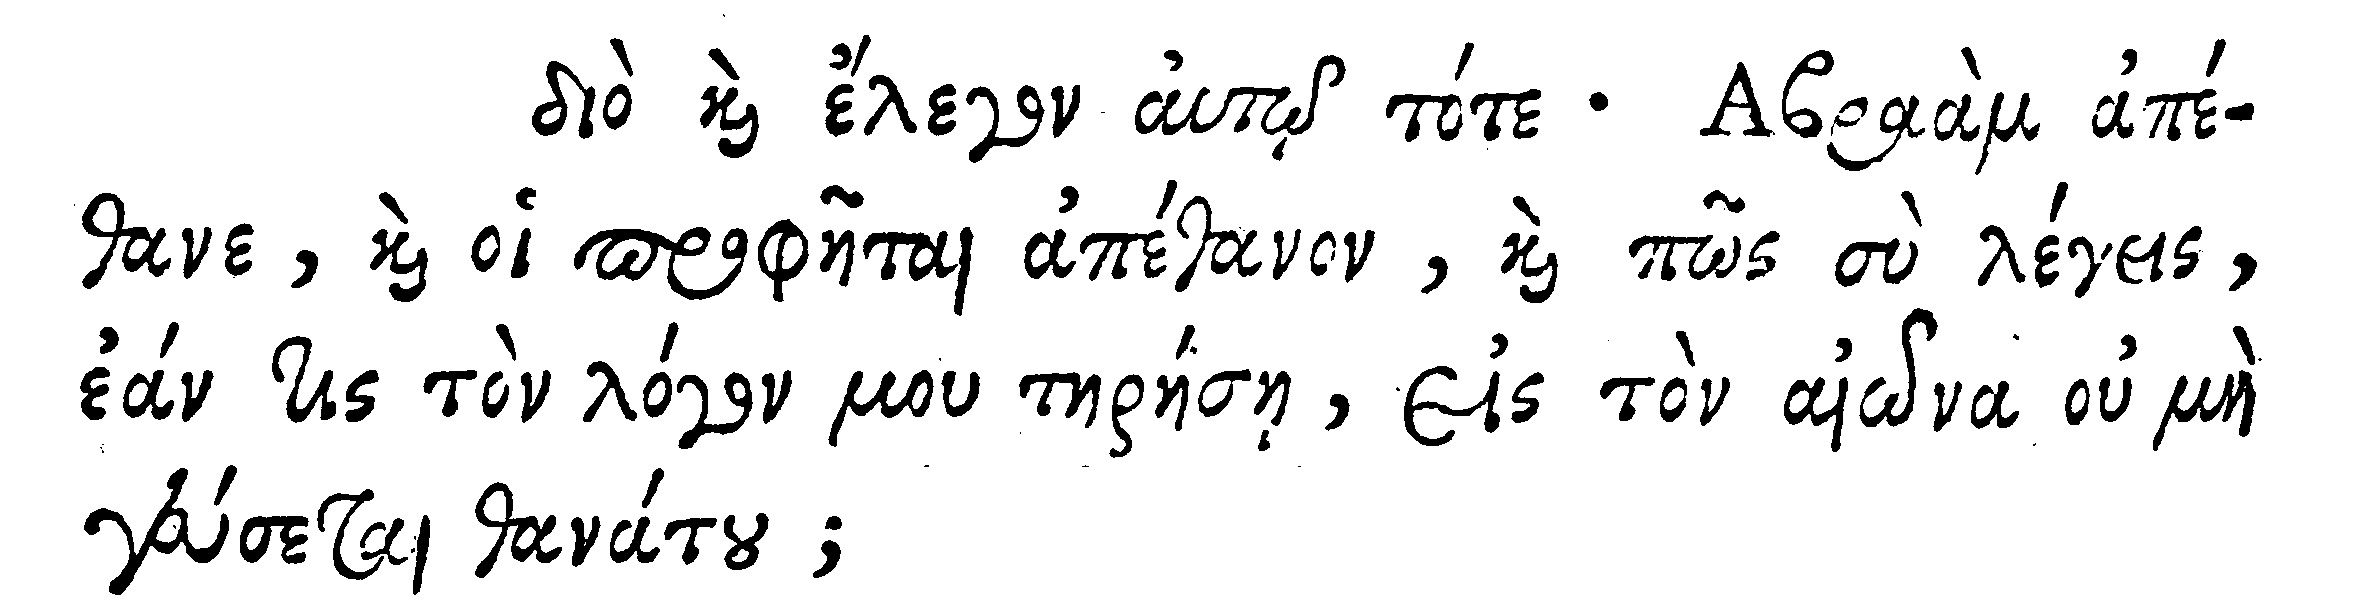 διὸ καὶ ἔλεγον αὐτῷ τότε · Αβραὰμ ἀπέ-
θανε, καὶ οἱ προφῆται ἀπέθανον, καὶ πῶς σὺ λέγεις,
ἐάν τις τὸν λόγον μου τηρήσῃ, εἰς τὸν αἰῶνα οὐ μὴ
γεύσεται θανάτου ;